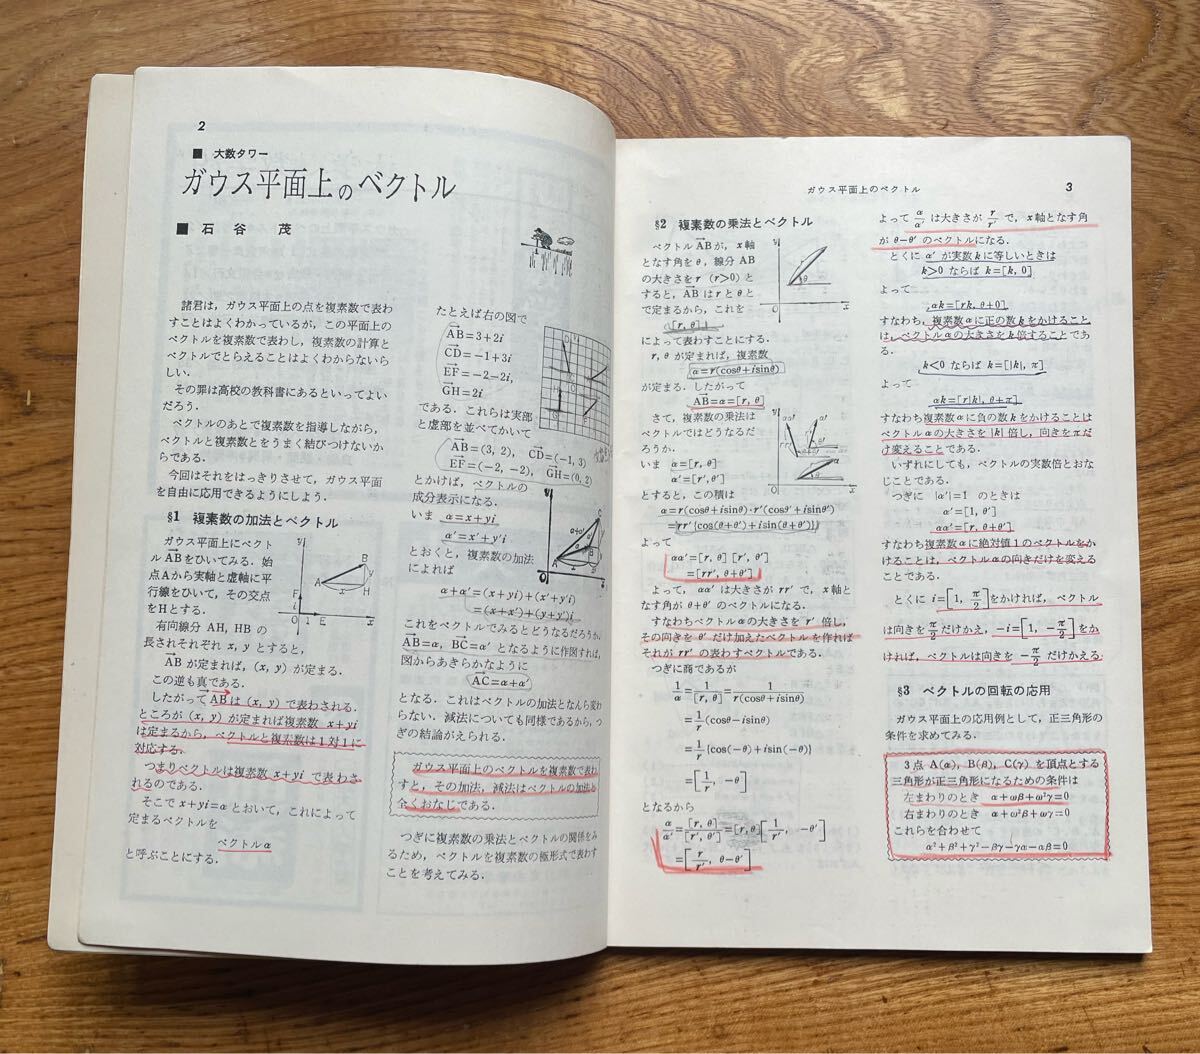 2
■ 大数タワー
ガウス平面上のベクトル
■ 石谷 茂
諸君は，ガウス平面上の点を複素数で表わ
すことはよくわかっているが，この平面上の
ベクトルを複素数で表わし，複素数の計算と
ベクトルでとらえることはよくわからないら
しい．
その罪は高校の教科書にあるといってよい
だろう．
ベクトルのあとで複素数を指導しながら，
ベクトルと複素数とをうまく結びつけないか
らである．
今回はそれをはっきりさせて，ガウス平面
を自由に応用できるようにしよう．
§1 複素数の加法とベクトル
ガウス平面上にベクト
ル→ABをひいてみる．始
点Aから実軸と虚軸に平
行線をひいて，その交点
をHとする．
有向線分 AH, HB の
長されぞれ x, y とすると，
→AB が定まれば，(x, y) が定まる．
この逆も真である．
したがって→ABは (x, y) で表わされる．
ところが (x, y) が定まれば複素数 x+yi
は定まるから，ベクトルと複素数は1対1に
対応する．
つまりベクトルは複素数 x+yi で表わさ
れるのである．
そこで x+yi=α とおいて，これによって
定まるベクトルを
ベクトル α
と呼ぶことにする．
たとえば右の図で
→AB=3+2i
→CD=−1+3i
→EF=−2−2i,
→GH=2i
である．これらは実部
と虚部を並べてかいて
→AB=(3, 2), →CD=(−1, 3)
→EF=(−2, −2), →GH=(0, 2)
とかけば，ベクトルの
成分表示になる．
いま α=x+yi
α′=x′+y′i
とおくと，複素数の加法
によれば
α+α′=(x+yi)+(x′+y′i)
=(x+x′)+(y+y′)i
これをベクトルでみるとどうなるだろうか．
→AB=α, →BC=α′ となるように作図すれば，
図からあきらかなように
→AC=α+α′
となる．これはベクトルの加法となんら変わ
らない．減法についても同様であるから，つ
ぎの結論がえられる．
ガウス平面上のベクトルを複素数で表わ
すと，その加法，減法はベクトルの加法と
全くおなじである．
つぎに複素数の乗法とベクトルの関係をみ
るため，ベクトルを複素数の極形式で表わす
ことを考えてみる．
ガウス平面上のベクトル 3
§2 複素数の乗法とベクトル
ベクトル→ABが，x軸
となす角を θ，線分 AB
の大きさを r (r>0) と
すると，→AB は r と θ と
で定まるから，これを
[r, θ]
によって表わすことにする．
r, θ が定まれば，複素数
α=r(cosθ+isinθ)
が定まる．したがって
→AB=α=[r, θ]
さて，複素数の乗法は
ベクトルではどうなるだ
ろうか．
いま α=[r, θ]
α′=[r′, θ′]
とすると，この積は
α=r(cosθ+isinθ)·r′(cosθ′+isinθ′)
=rr′{cos(θ+θ′)+isin(θ+θ′)}
よって
αα′=[r, θ] [r′, θ′]
=[rr′, θ+θ′]
よって，αα′ は大きさが rr′ で，x軸と
なす角が θ+θ′ のベクトルになる．
すなわちベクトルαの大きさを r′ 倍し，
その向きを θ′ だけ加えたベクトルを作れば
それが rr′ の表わすベクトルである．
つぎに商であるが
1/α=1/[r, θ]=1/r(cosθ+isinθ)
=1/r(cosθ−isinθ)
=1/r{cos(−θ)+isin(−θ)}
=[1/r, −θ]
となるから
α/α′=[r, θ]/[r′, θ′]=[r, θ][1/r′, −θ′]
=[r/r′, θ−θ′]
よって α/α′ は大きさが r/r′ で，x軸となす角
が θ−θ′ のベクトルになる．
とくに α′ が実数kに等しいときは
k>0 ならば k=[k, 0]
よって
αk=[rk, θ+0]
すなわち，複素数αに正の数kをかけること
は，ベクトルαの大きさをk倍することであ
る．
k<0 ならば k=[|k|, π]
よって
αk=[r|k|, θ+π]
すなわち複素数αに負の数kをかけることは
ベクトルαの大きさを |k| 倍し，向きをπだ
け変えることである．
いずれにしても，ベクトルの実数倍とおな
じことである．
つぎに |α′|=1 のときは
α′=[1, θ′]
αα′=[r, θ+θ′]
すなわち複素数αに絶対値1のベクトルをか
けることは，ベクトルαの向きだけを変える
ことである．
とくに i=[1, π/2]をかければ，ベクトル
は向きをπ/2だけかえ，−i=[1, −π/2]をか
ければ，ベクトルは向きを −π/2 だけかえる．
§3 ベクトルの回転の応用
ガウス平面上の応用例として，正三角形の
条件を求めてみる．
3点 A(α), B(β), C(γ) を頂点とする
三角形が正三角形になるための条件は
左まわりのとき α+ωβ+ω²γ=0
右まわりのとき α+ω²β+ωγ=0
これらを合わせて
α²+β²+γ²−βγ−γα−αβ=0